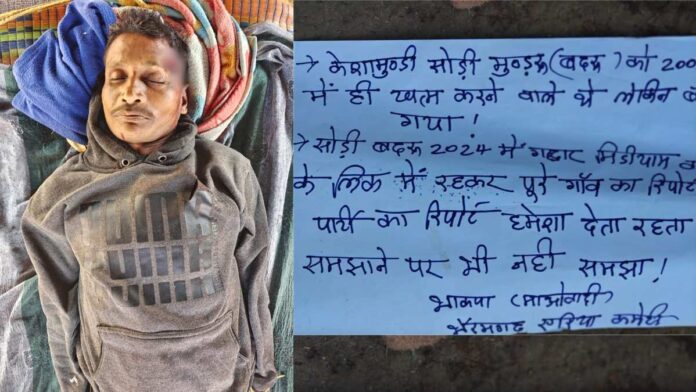 → केशामुण्डी सोड़ी मुण्ड्रू (बदरू) को 200
में ही खत्म करने वाले थे लेकिन
गया!
→ सोड़ी बदरू 2024 में गद्दार मिडीयाम
के लिंक में रहकर पूरे गाँव का रिपोर्ट
पार्टी का रिपोर्ट हमेशा देता रहता
समझाने पर भी नही समझा!
भाकपा (माओवादी)
भैरमगढ़ एरिया कमेटी